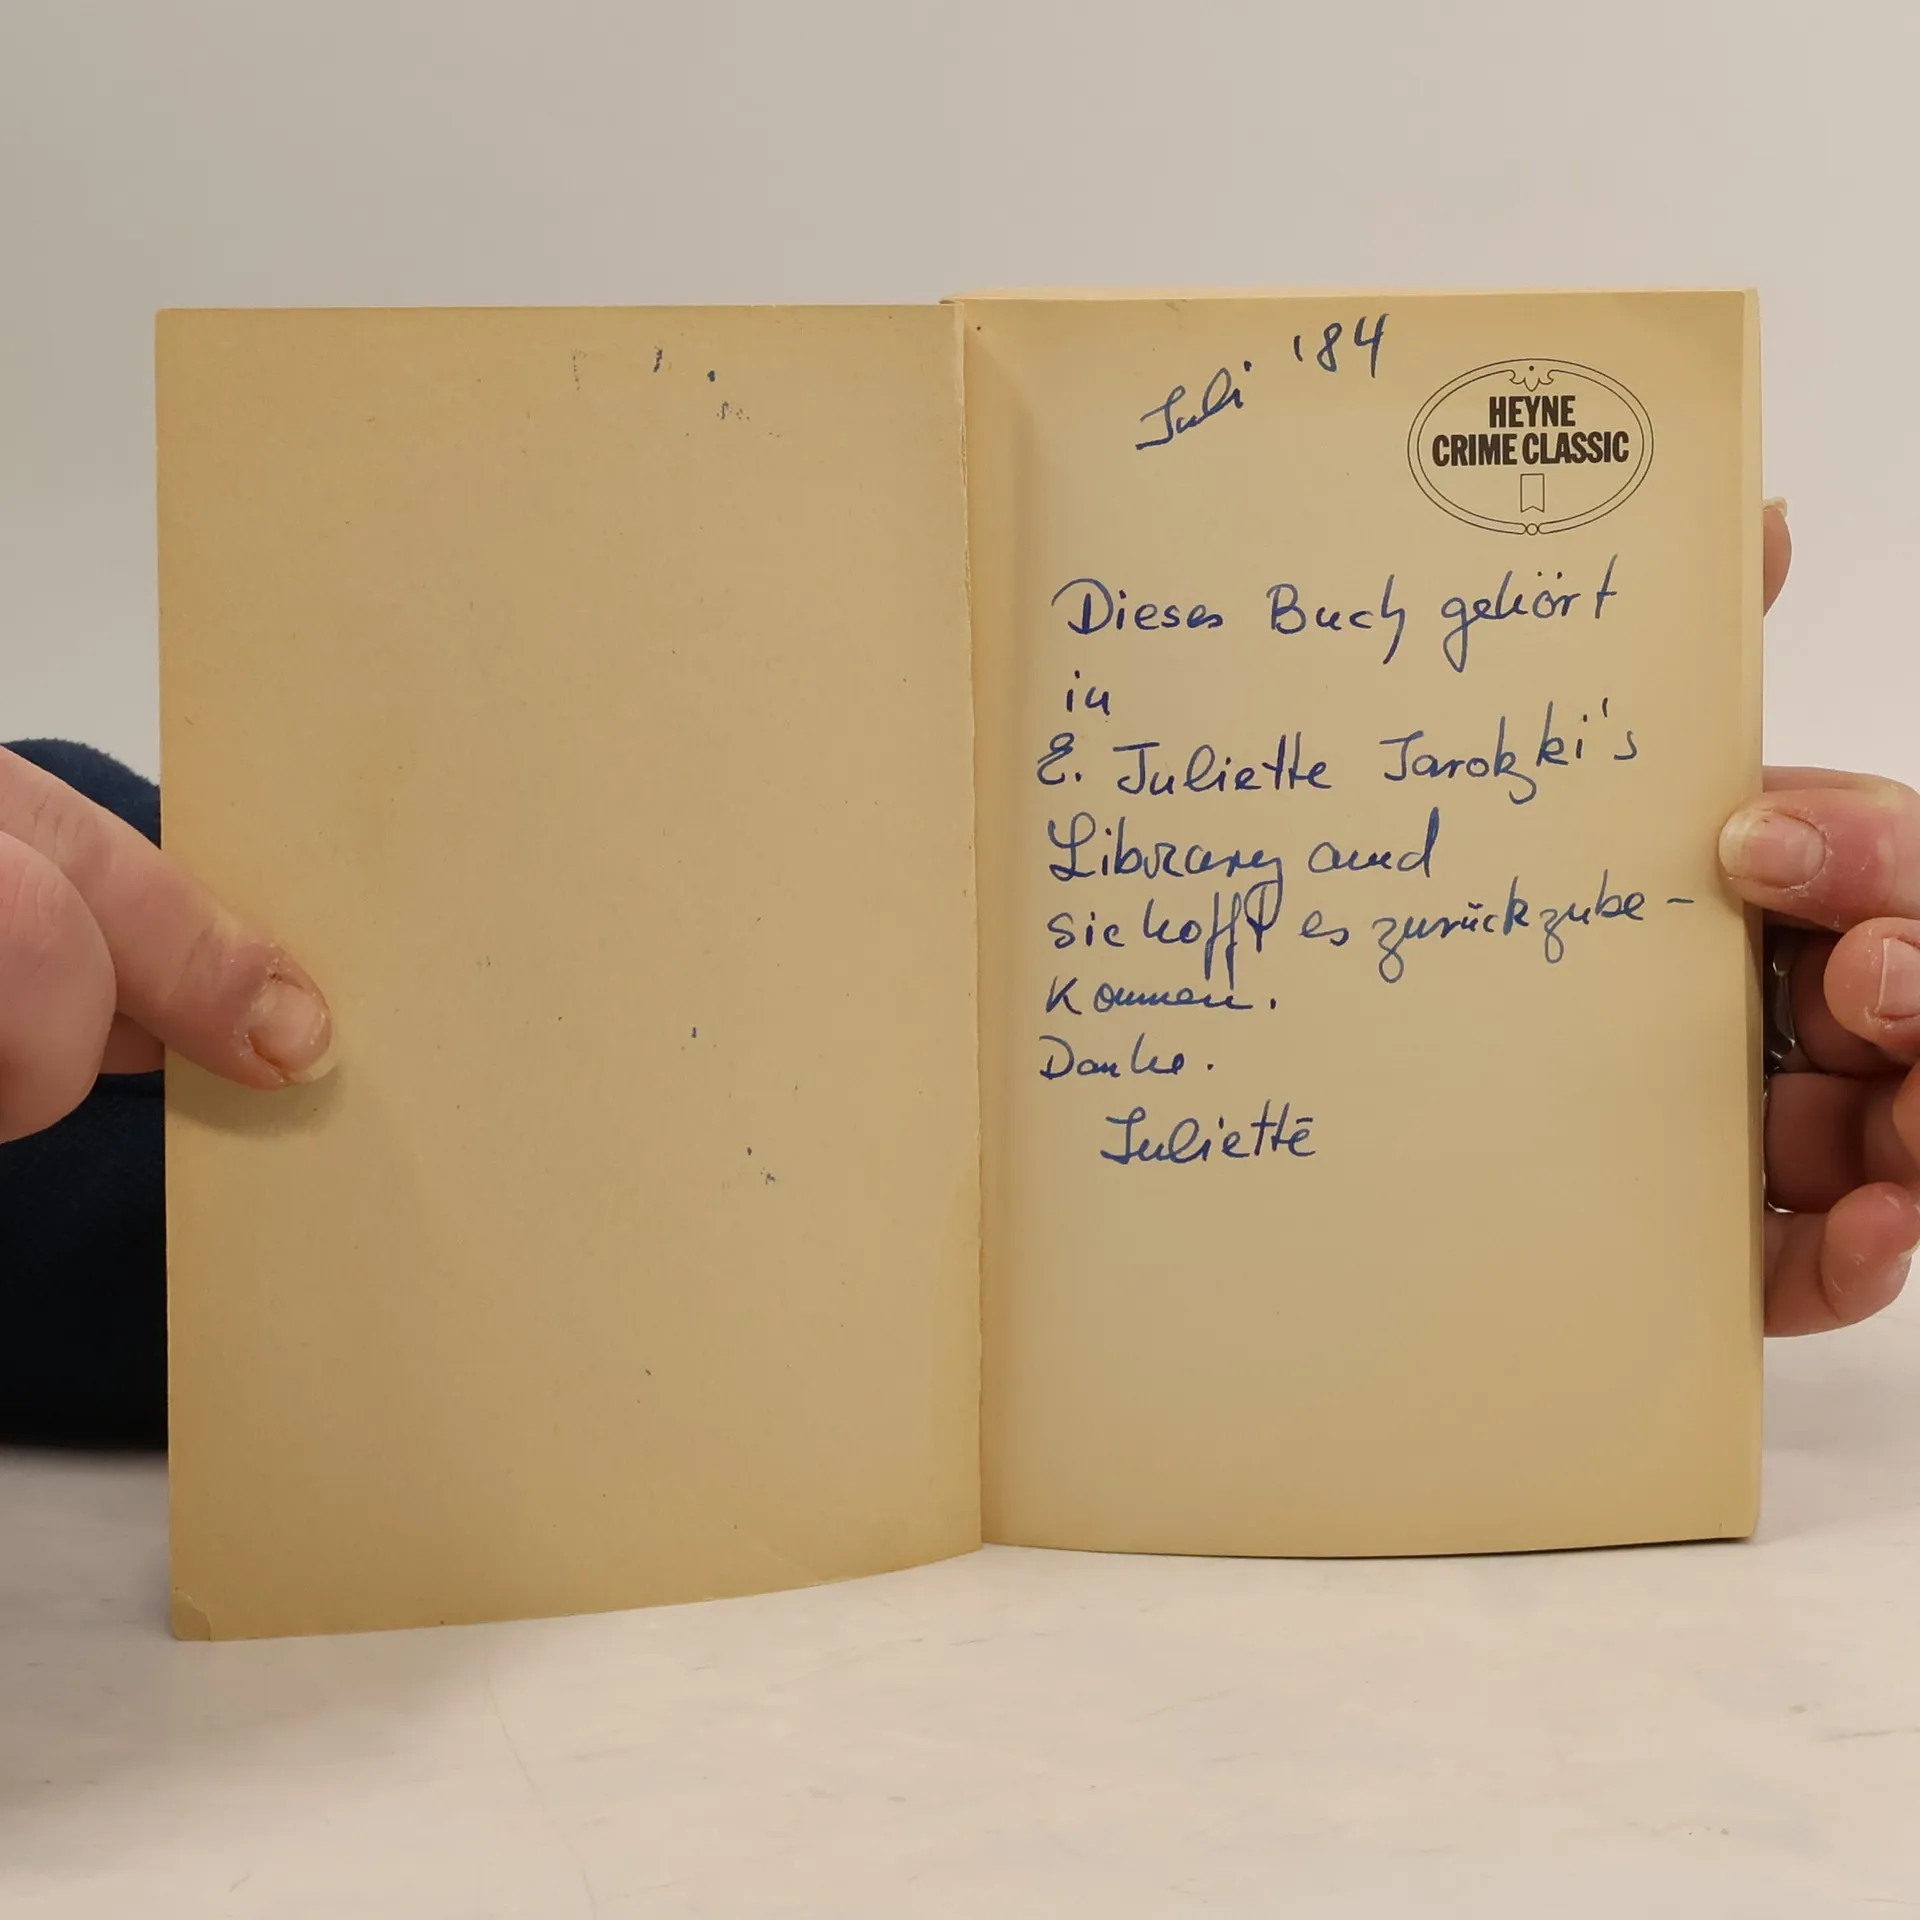 Juli '84
HEYNE
CRIME CLASSIC
Dieses Buch gehört
in
E. Juliette Jarotzki's
Library and
sie hofft es zurückzube-
kommen.
Danke.
Juliette